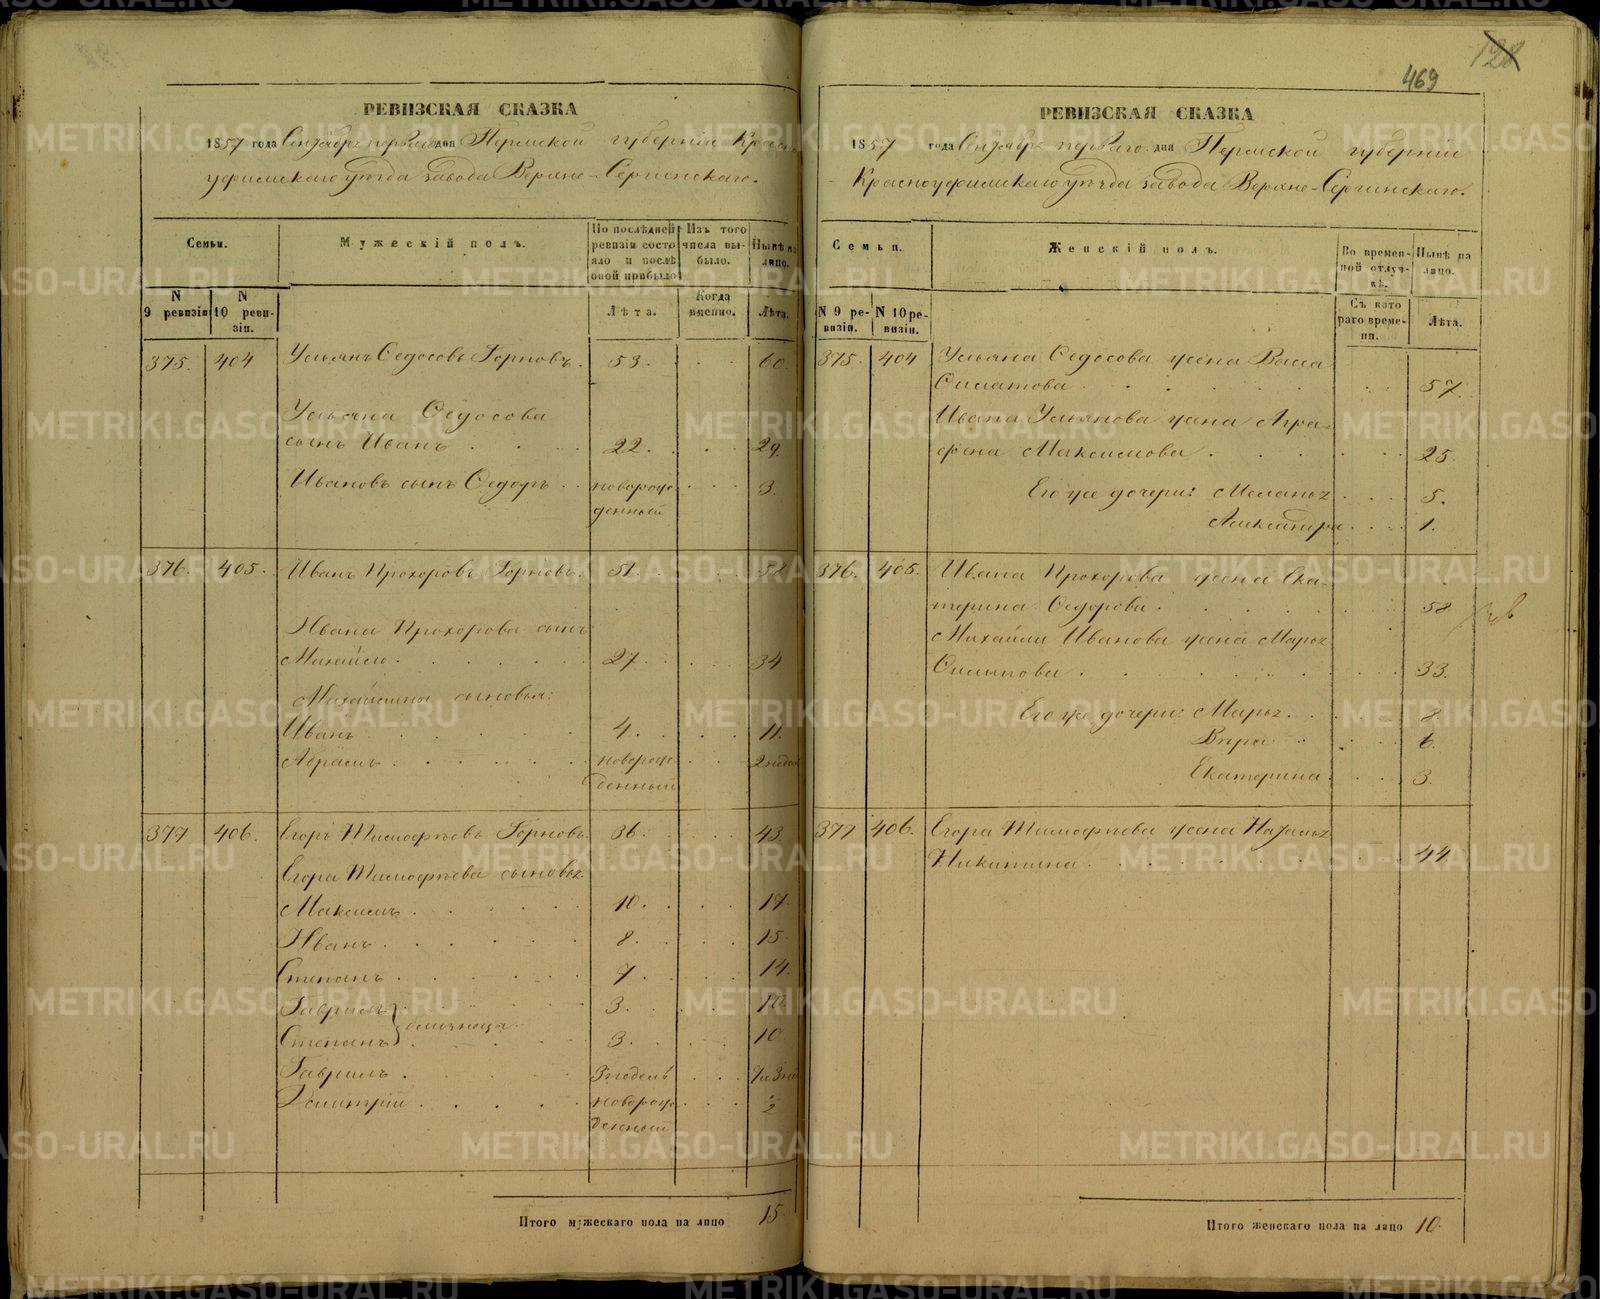 128
469
РЕВИЗСКАЯ СКАЗКА
1857 года Сентября перваго дня Пермской губерніи Красно
уфимскаго уѣзда завода Верхне-Сергинскаго.
Семьи.
Мужескій полъ.
По послѣдней ревизіи состояло и послѣ оной прибыло
Изъ того числа выбыло.
Нынѣ на лицо.
N 9 ревизіи
N 10 ревизіи.
Лѣта.
Когда именно.
Лѣта.
375. 404 Ульянъ Ѳедосовъ Горновъ. 53. 60
Ульяна Ѳедосова
сынъ Иванъ 22. 29.
Ивановъ сынъ Ѳедоръ новорож 3.
денный
376. 405. Иванъ Прохоровъ Горновъ. 51.
Ивана Прохорова сынъ
Михайло 27. 34
Михайлины сыновья:
Иванъ 4. 11.
Абрамъ новорож
денный
377 406. Егоръ Тимофѣевъ Горновъ 36. 43.
Егора Тимофѣева сыновья
Максимъ 10. 17.
Иванъ 8. 15.
Степанъ 7. 14.
Гаврилъ 3. 10.
близнецы
Степанъ 3. 10
Гаврилъ 3 недель
Дмитрій новорож 2
денный
Итого мужескаго пола на лицо 15
РЕВИЗСКАЯ СКАЗКА
1857 года Сентября перваго дня Пермской губерніи
Красноуфимскаго уѣзда завода Верхне-Сергинскаго.
Семьи.
Женскій полъ.
Во временной отлучкѣ.
Нынѣ на лицо.
N 9 ревизіи.
N 10 ревизіи.
Съ котораго времени.
Лѣта.
375. 404 Ульяна Ѳедосова жена Васса
57.
Ивана Ульянова жена Агра-
фена Максимова 25.
Его же дочери: Меланья 5.
Александра 1.
376. 405. Ивана Прохорова жена Ека-
терина Ѳедорова. 58
Михайли Иванова жена Марья
Осипова 33.
Его же дочери: Марья. 8.
Вѣра 6.
Екатерина. 3.
377 406. Егора Тимофѣева жена Наталья
Никитина 44
Итого женскаго пола на лицо 10.
METRIKI.GASO-URAL.RU